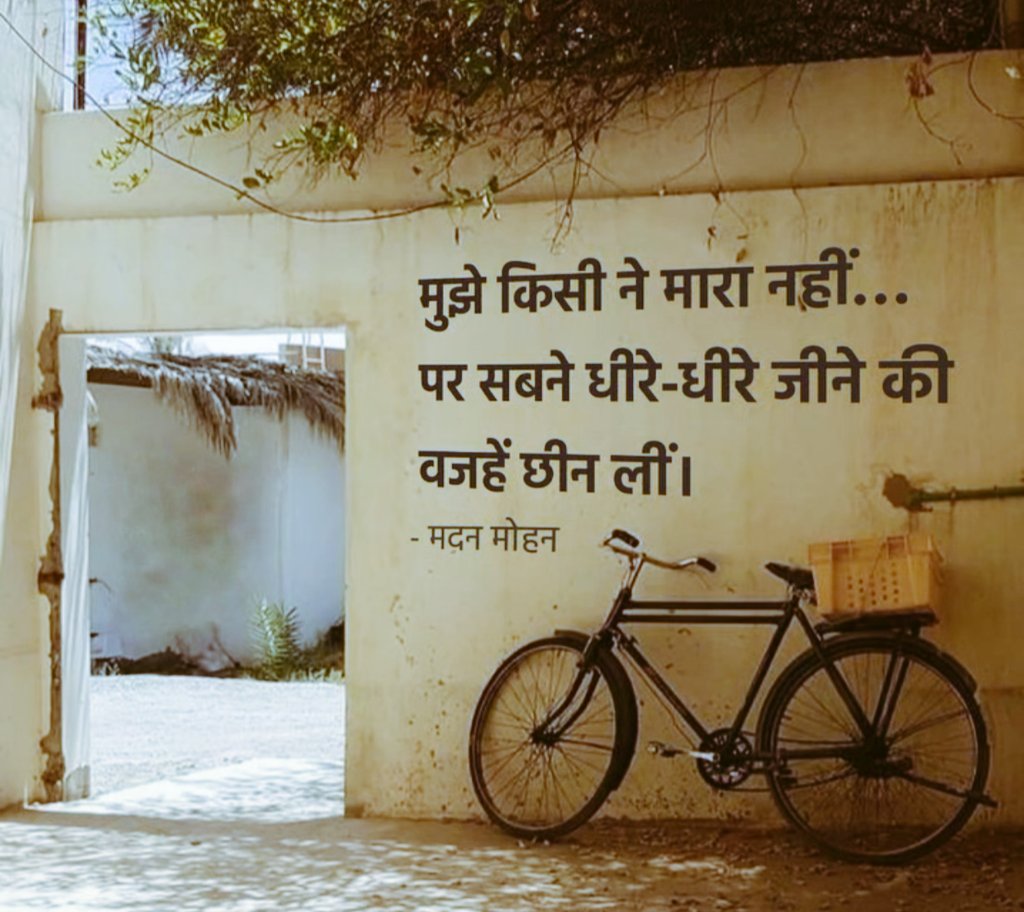 मुझे किसी ने मारा नहीं...
पर सबने धीरे-धीरे जीने की
वजहें छीन लीं।
- मदन मोहन